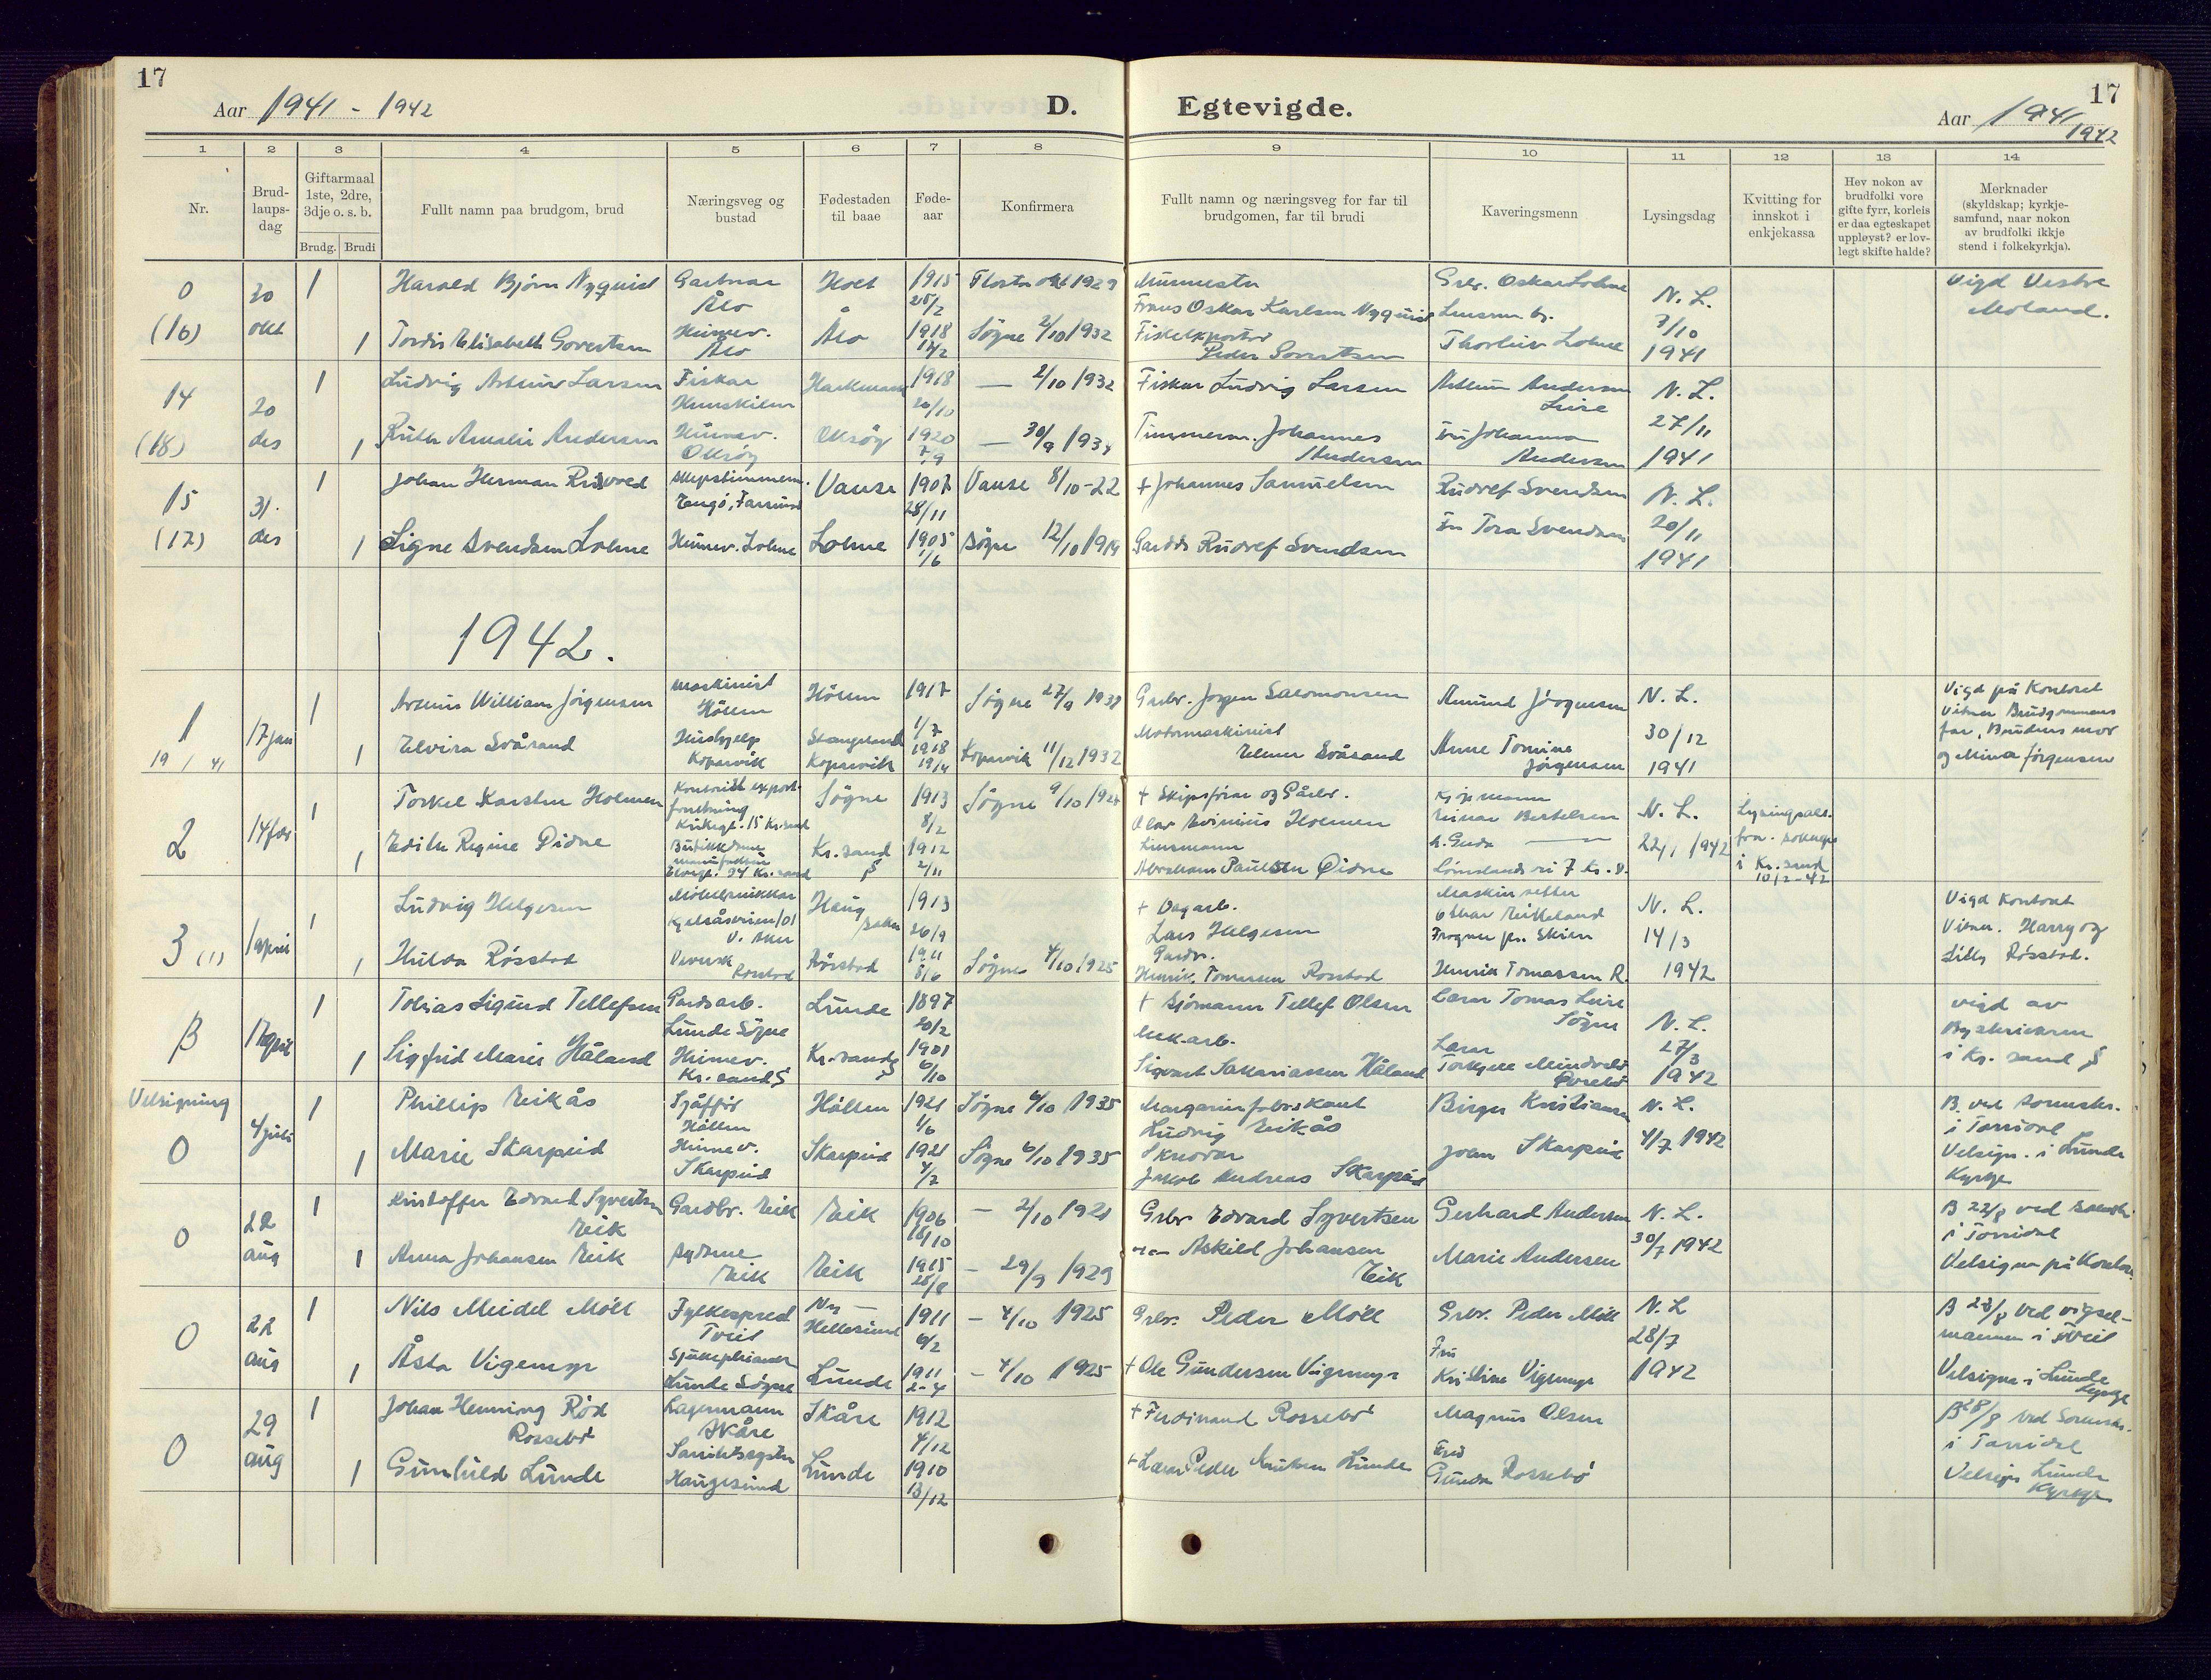 17
Aar 1941 - 1942
D.
Egtevigde.
Aar 1941
1942
17
1 2 3 4 5 6 7 8 9 10 11 12 13 14
Nr.
Brud-
laups-
dag
Giftarmaal
1ste, 2dre,
3dje o. s. b.
Brudg. Brudi
Fullt namn paa brudgom, brud
Næringsveg og
bustad
Fødestaden
til baae
Føde-
aar
Konfirmera
Fullt namn og næringsveg for far til
brudgomen, far til brudi
Kaveringsmenn
Lysingsdag
Kvitting for
innskot i
enkjekassa
Hev nokon av
brudfolki vore
gifte fyrr, korleis
er daa egteskapet
uppløyst? er lov-
legt skifte halde?
Merknader
(skyldskap; kyrkje-
samfund, naar nokon
av brudfolki ikkje
stend i folkekyrkja).
0
(16)
30
okt
1
Harald Bjørn Nyquist
Gartnar
Ålo
Holt
1915
25/2
1929
Frans Oskar Karlsen Nyquist
Grbr. Oskar Lohne
N. L.
7/10
1941
Vigd Vestre
Moland.
1
Tordis Elisabeth Govertsen
Heimev.
Ålo
Ålo
1918
Søgne 2/10 1932
Fiskeksportør
Peder Govertsen
Thorleiv Lohne
14
(18)
20
des
1
Ludvig Arthur Larsen
Fiskar
Harkmark
1918
20/10
— 2/10 1932
Fiskar Ludvig Larsen
N. L.
27/11
1941
1
Ruth Amalie Andersen
Heimev.
Oksøy
Oksøy
1920
7/9
— 30/9 1934
Timmerm. Johannes
Andersen
Fru Johanna
Andersen
15
(17)
31.
des
1
Johan Herman
Skipstimmerm.
Vanse
1907
28/11
Vanse 8/10-22
+ Johannes Samuelsen
Rudolf Svendsen
N. L.
20/11
1941
1
Signe Svendsen Lohne
Heimev. Lohne
Lohne
1905
1/6
Søgne 12/10 1919
Gardbr Rudolf Svendsen
Fru Tora Svendsen
1942.
1
19 / 41
17 jan
1
Arthur William Jørgensen
Maskinist
Høllen
Høllen
1917
1/7
Søgne 27/9 1931
Garbr. Jørgen Salomonsen
Amund Jörgensen
N. L.
30/12
1941
Vigd på Kontoret
Vitner Brudgommens
far, Brudens mor
og Mina Jørgensen
1
Elvira Svåsand
Hushjelp
Kopervik
Stangeland
Kopervik
1918
19/4
Kopervik 11/12 1932
Motormaskinist
Elmer Svåsand
Anne Tomine
Jørgensen
2
14 feb
1
Torkel Karsten Holmen
Kontorist export-
forretning
Kirkegt. 15 Kr.sand
Søgne
1913
8/2
Søgne 9/10 192
+ Skipsførar og Gårbr.
Olav Holmen
Kjøpmann
Einar Bertelsen
N. L.
22/1 1942
Lysingsatt.
fra. soknepr
i Kr.sand
10/2-42
1
Edith Regine Øidne
Elvegt. 24 Kr.sand
Kr.sand
S
1912
2/11
Lensmann
Abraham Paulsen Øidne
3 (1)
1 april
1
Ludvig Helgesen
Møbelsnikkar
V. Aker
Haug
1913
26/9
+ Dagarb.
Lars Helgesen
Othar Eikeland
Frogner pr. Skien
N. L.
14/3
1942
Vigd kontoret
Vitner. Harry og
Lilly Røsstad.
1
Hulda Røsstad
Røsstad
Røsstad
1911
8/6
Søgne 4/10 1925
Gardbr.
Henrik Tomassen Rosstad
Henrik Tomassen R.
B
17 april
1
Tobias Sigurd Tellefsen
Gardsarb.
Lunde Søgne
Lunde
1897
20/2
+ Sjømann Tellef Olsen
Lærar Tomas Leire
Søgne
N. L.
27/3
1942
vigd av
Byskrivaren
i Kr. sand S
1
Sigfrid Marie Håland
Heimev.
Kr. sand S
Kr.sand
S
1901
6/10
Mek.arb.
Sigvart Sakariassen Håland
Lærar
Velsigning
0
4 juli
1
Phillip Eikås
Sjåfør
Høllen
Høllen
1921
1/6
Søgne 6/10 1935
Margarinfabrikant
Ludvig Eikås
Birger Kristiansen
N. L.
4/7 1942
B. ved sorenskr.
i Torridal
Velsign. i Lunde
Kyrkje
1
Marie Skarpeid
Heimev.
Skarpeid
Skarpeid
1921
4/2
Søgne 6/10 1935
Skredar
Jakob Andreas Skarpeid
John Skarpeid
0
22
aug
1
Kristoffer Edvard Syvertsen
Eik
Gardbr. Eik
Eik
1906
18/10
— 2/10 1921
Grbr Edvard Syvertsen
Gerhard Andersen
N. L.
30/7 1942
B 22/8 ved sorenskr
i Torridal
Velsigna på Kontor.
1
Anna Johansen Eik
Sydame
Eik
Eik
1915
25/8
— 29/9 1929
—"— Askild Johansen
Eik
Marie Andersen
0
22
aug
1
Nils Meidel Möll
Tveit
Ny —
Hellesund
1911
6/2
— 4/10 1925
Grbr. Peder Möll
Grbr. Peder Möll
N. L
28/7
1942
B 22/8 ved vigsel-
mannen i Tveit
Velsigna i Lunde
kyrkje
1
Åsta Vigemyr
Sjukepleiarsk
Lunde Søgne
Lunde
1911
2-4
— 4/10 1925
+ Ole Gundersen Vigemyr
Fru
Kristine Vigemyr
0
29
aug
1
Johan Henning Rød
Rossebø
Lagermann
Skåre
Skåre
1912
4/12
+ Ferdinand Rossebø
Magnus Olsen
B 28/8 ved Sorenskr.
i Torridal
Velsign Lunde
Kyrkje
1
Gunhild Lunde
Haugesund
Lunde
1910
13/12
+ Lærar Peder Knutsen Lunde
Fru
Gunda Rossebø